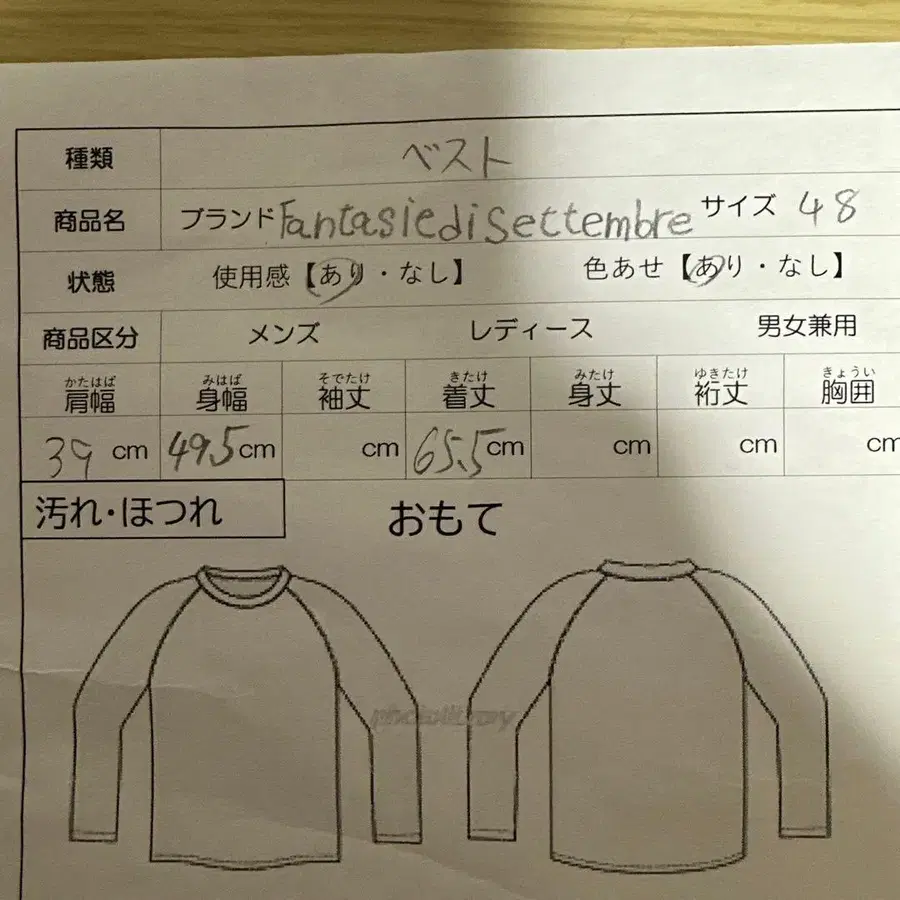 種類 ベスト
商品名 ブランド Fantasie di Settembre サイズ 48
状態 使用感【あり・なし】 色あせ【あり・なし】
商品区分 メンズ レディース 男女兼用
かたはば みはば そでたけ きたけ みたけ ゆきたけ きょうい
肩幅 身幅 袖丈 着丈 身丈 裄丈 胸囲
39 cm 49.5 cm cm 65.5 cm cm cm cm
汚れ・ほつれ おもて
photolibrary